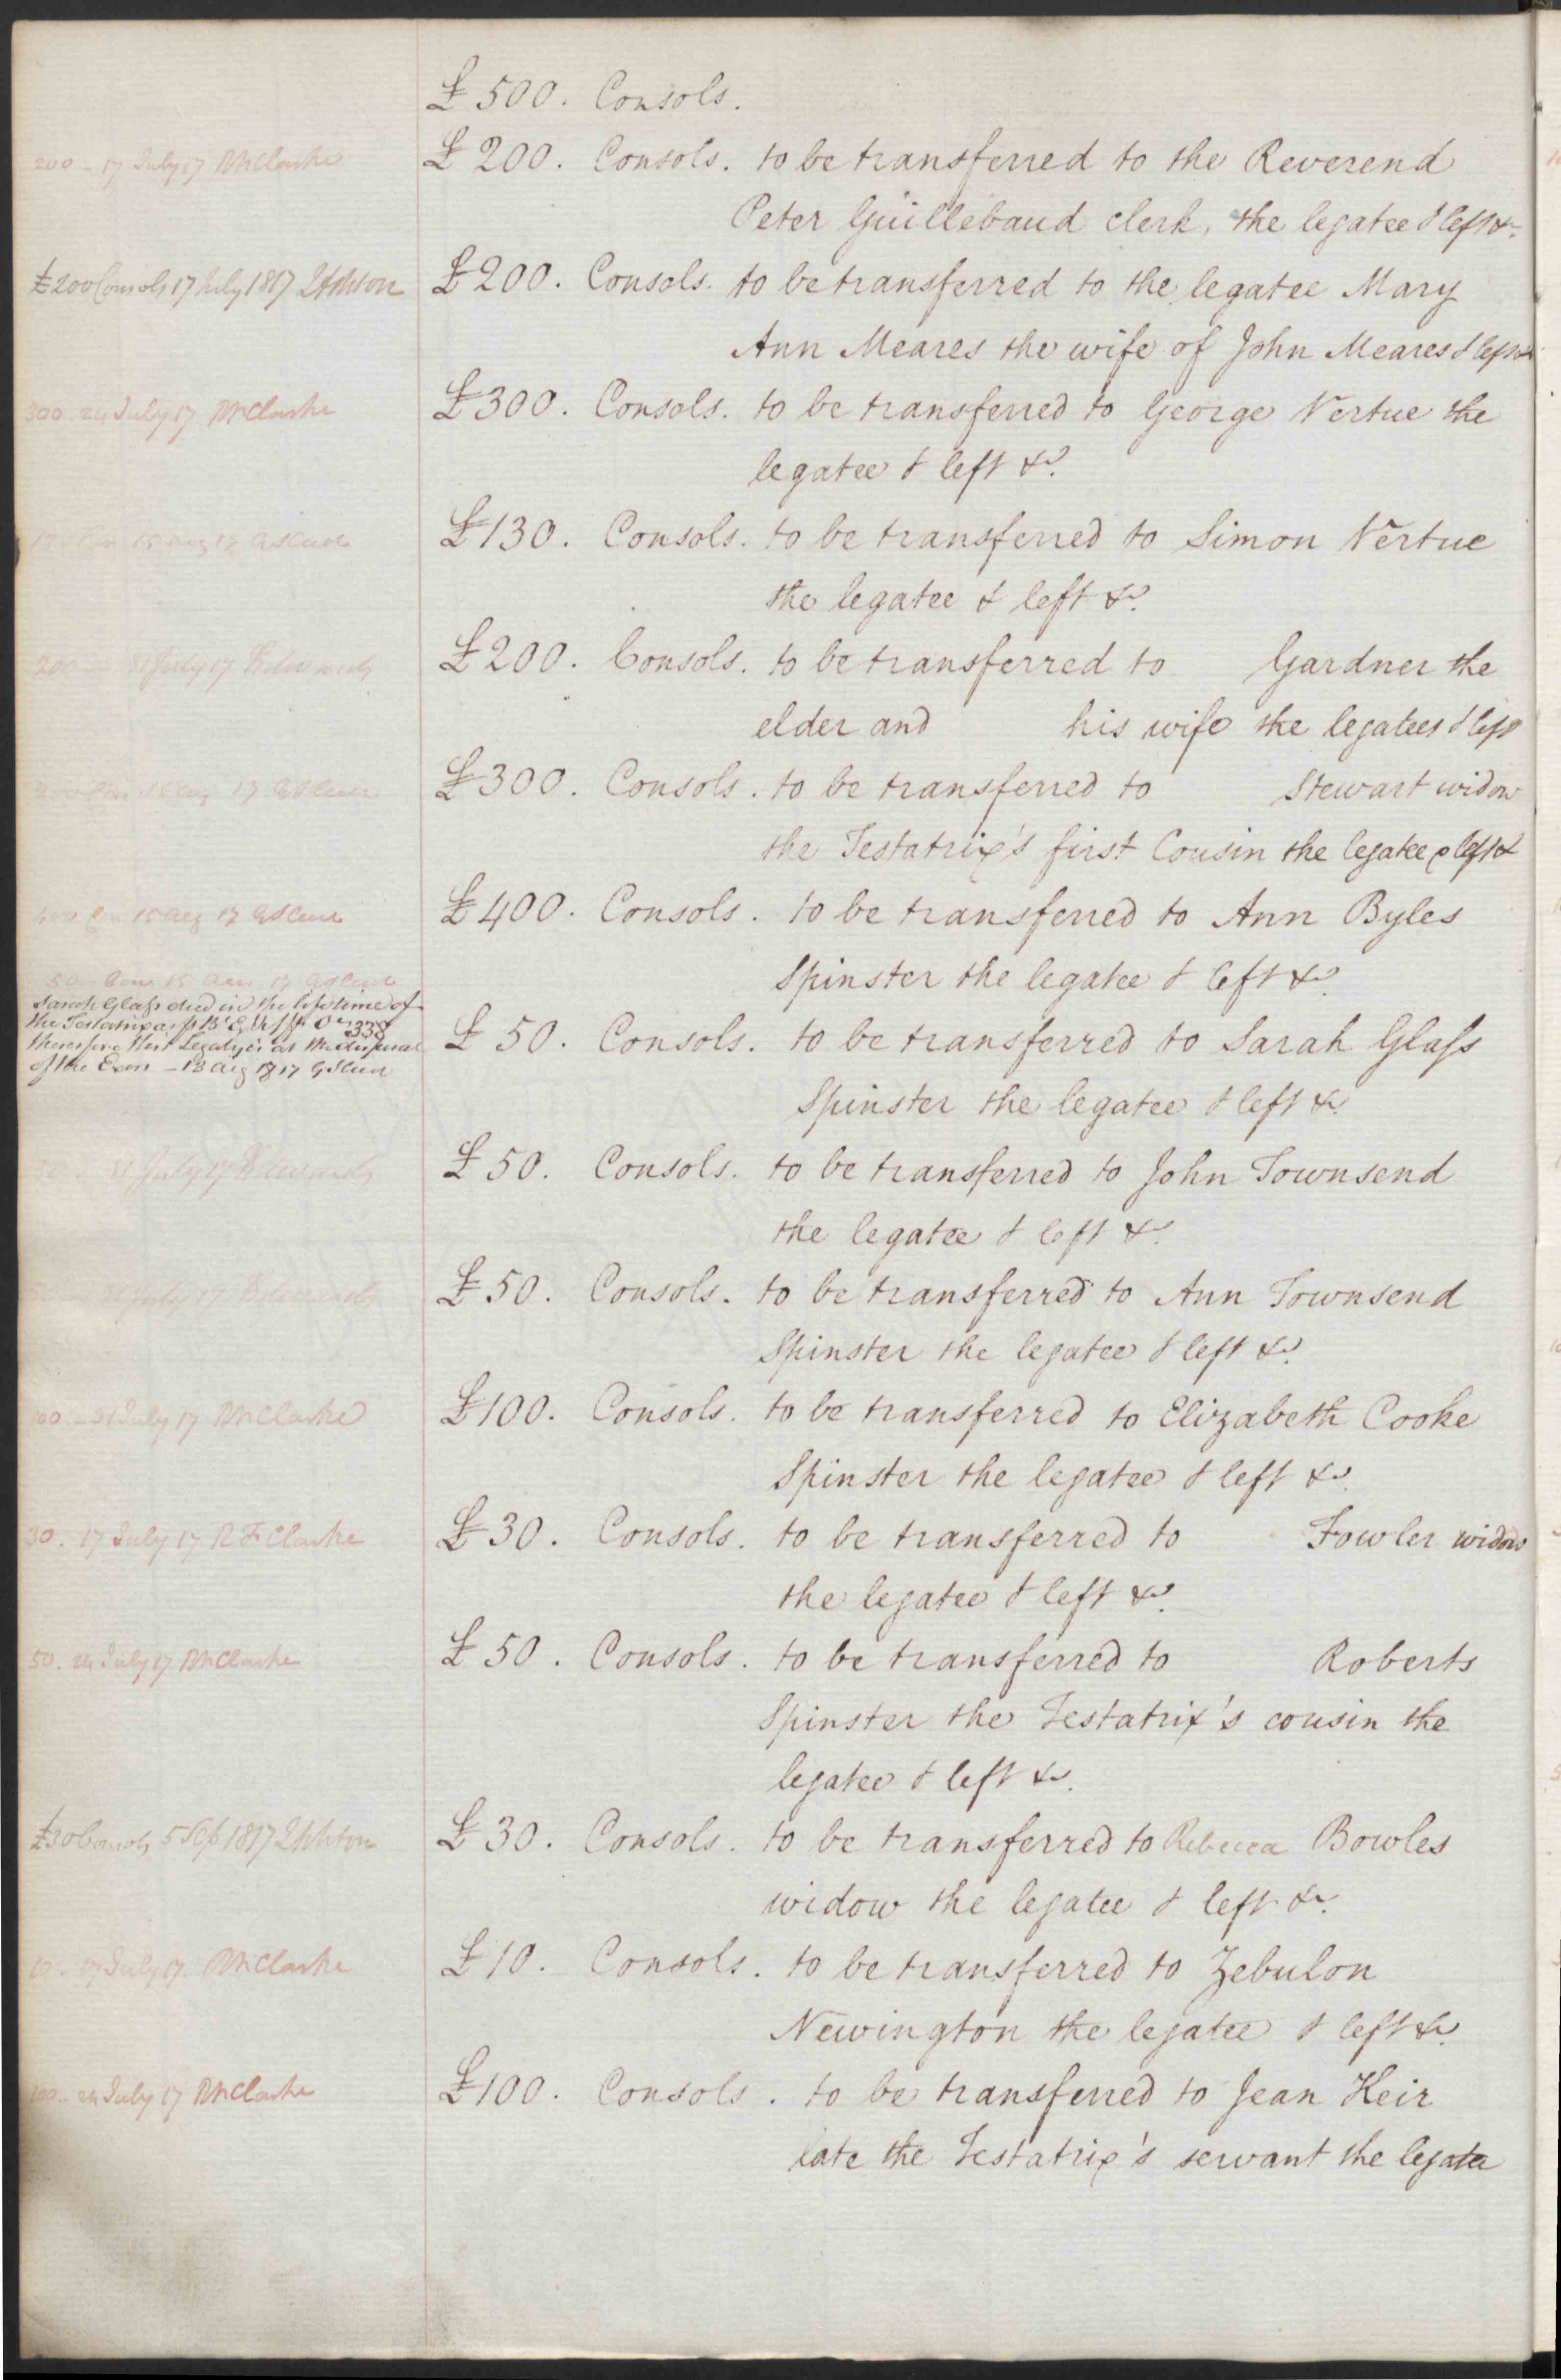 £500. Consols.
200 - 17 July 17 RMClarke
£200. Consols. to be transferred to the Reverend
Peter Guillebaud clerk, the legatee & left &c.
£200 Consols 17 July 1817
£200. Consols. to be transferred to the legatee Mary
Ann Meares the wife of John Meares & left &c
300 - 24 July 17 RMClarke
£300. Consols. to be transferred to George Vertue the
legatee & left &c.
15 Aug 17
£130. Consols. to be transferred to Simon Vertue
the legatee & left &c.
200 31 July 17 Edwards
£200. Consols. to be transferred to Gardner the
elder and his wife the legatees & left
17
£300. Consols. to be transferred to Stewart widow
the Testatrix's first Cousin the legatee & left &
15 Aug 17
£400. Consols. to be transferred to Ann Byles
Spinster the legatee & left &c.
50 Cons 15 Aug 17
Sarah Glass died in the lifetime of
the Testatrix as 338
therefore this Legacy is at the disposal
of the Exors - 13 Aug 1817
£50. Consols. to be transferred to Sarah Glass
Spinster the legatee & left &c.
31 July 17 Edwards
£50. Consols. to be transferred to John Townsend
the legatee & left &c.
July 17 Edwards
£50. Consols. to be transferred to Ann Townsend
Spinster the legatee & left &c.
100 - 31 July 17 RMClarke
£100. Consols. to be transferred to Elizabeth Cooke
Spinster the legatee & left &c.
30. 17 July 17 RMClarke
£30. Consols. to be transferred to Fowler widow
the legatee & left &c.
50. 24 July 17 RMClarke
£50. Consols. to be transferred to Roberts
Spinster the Testatrix's cousin the
legatee & left &c.
£30 Consols 5 Sep 1817
£30. Consols. to be transferred to Rebecca Bowles
widow the legatee & left &c.
10. 17 July 17. RMClarke
£10. Consols. to be transferred to Zebulon
Newington the legatee & left &c.
100. 24 July 17 RMClarke
£100. Consols. to be transferred to Jean Keir
late the Testatrix's servant the legatee